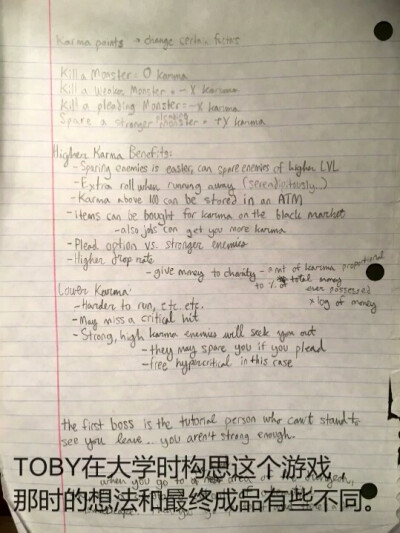 Karma points → change certain fates
Kill a Monster = 0 karma
Kill a weaker Monster = -X karma
Kill a pleading Monster = -X karma
Spare a stronger pleading monster = +Y karma
Higher Karma Benefits:
- Sparing enemies is easier, can spare enemies of higher LVL
- Extra roll when running away (serendipitously...)
- Karma above 100 can be stored in an ATM
- Items can be bought for karma on the black market
- also jobs can get you more karma
- Plead option vs. stronger enemies
- Higher drop rate
- give money to charity - amt of karma proportional
to % of total money
ever possessed
x log of money
Lower Karma:
- Harder to run, etc etc.
- May miss a critical hit
- Strong, high karma enemies will seek you out
- they may spare you if you plead
- free hypercritical in this case
the first boss is the tutorial person who can't stand to
see you leave... you aren't strong enough.
TOBY在大学时构思这个游戏，
when you go to a area of the dungeon,
那时的想法和最终成品有些不同。